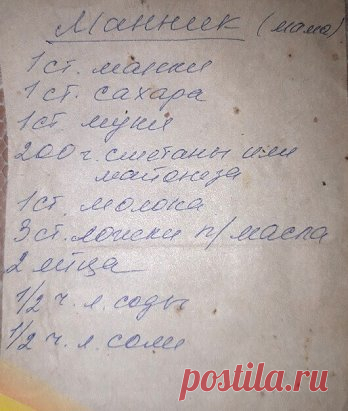 Манник (мама)
1 ст. манки
1 ст. сахара
1 ст. муки
200 г. сметаны или
майонеза
1 ст. молока
3 ст. ложски п/масла
2 яйца
1/2 ч. л. соды
1/2 ч. л. соли
postila.ru